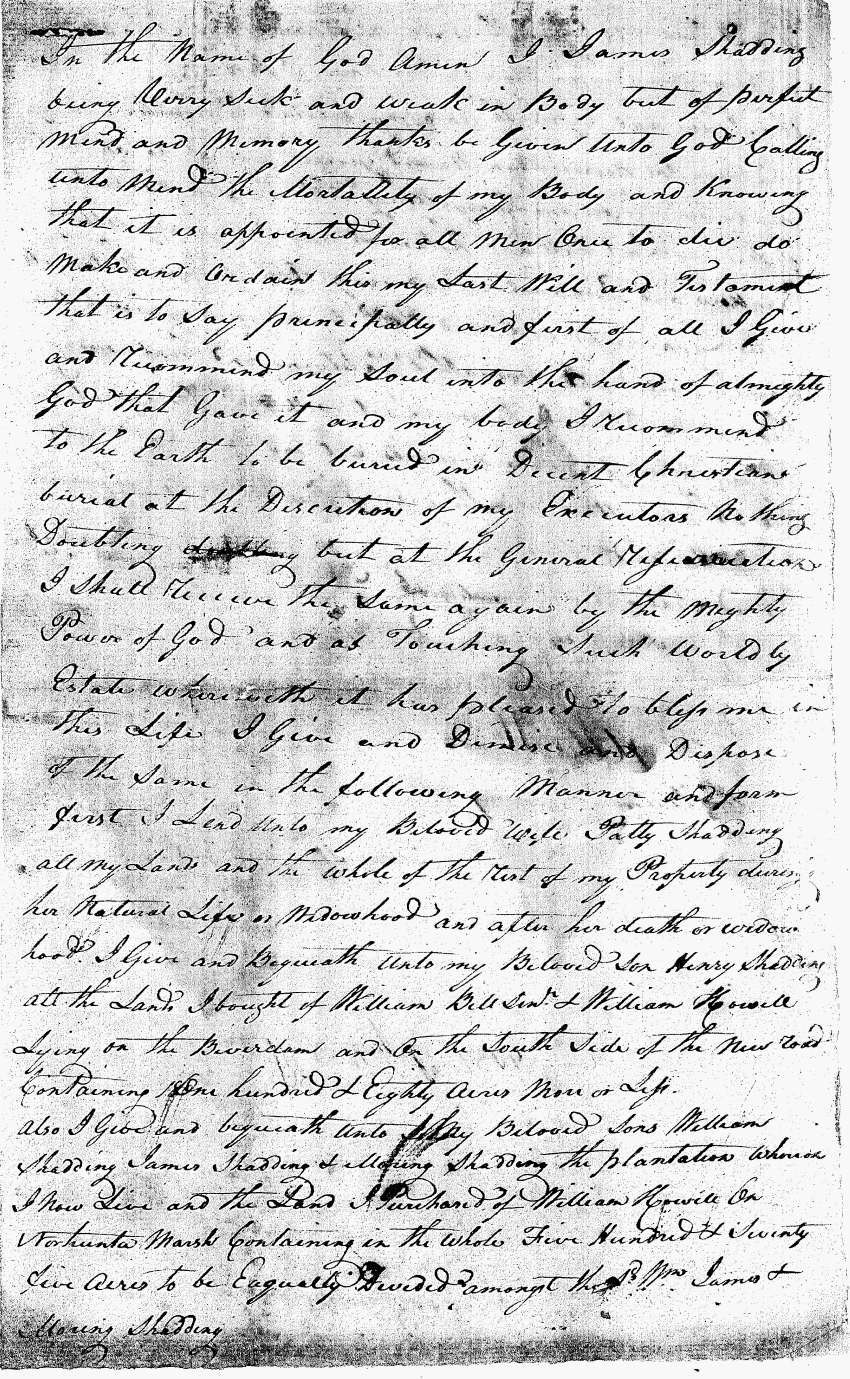 In the Name of God Amen I James Shadding
being Verry Sick and weak in Body but of perfect
Mind and Memory thanks be Given unto God Calling
unto Mind the Mortallity of my Body and Knowing
that it is appointed for all Men Once to die do
Make and Ordain this my Last Will and Testament
that is to Say principally and first of all I Give
and Recommend my Soul into the hand of almighty
God that Gave it and my body I recommend
to the Earth to be buried in Decent Christian
burial at the Discretion of my Executors Nothing
Doubting but at the General Resurrection
I Shall Receive the Same again by the Mighty
Power of God and as Touching Such Worldly
Estate wherewith it has pleased to bless me in
this Life I Give and Demise and Dispose
of the Same in the following Manner and form
first I Lend unto my Beloved Wife Patty Shadding
all my Lands and the whole of the Rest of my Property during
her Natural Life or Widowhood and after her death or widow
hood I Give and Bequeath unto my Beloved Son Henry Shadding
all the Lands I bought of William Bell Senr. & William Howell
Lying on the Beverdam and On the South Side of the New road
Containing One hundred & Eighty Acres More or Less.
also I Give and bequeath unto My Beloved Sons William
Shadding James Shadding & Moring Shadding the plantation Whereon
I Now Live and the Land I Purchased of William Howell On
Norhunta Marsh Containing in the whole Five Hundred & Seventy
five Acres to be Eaqually Devided amongst the Sd. Wm James &
Moring Shadding